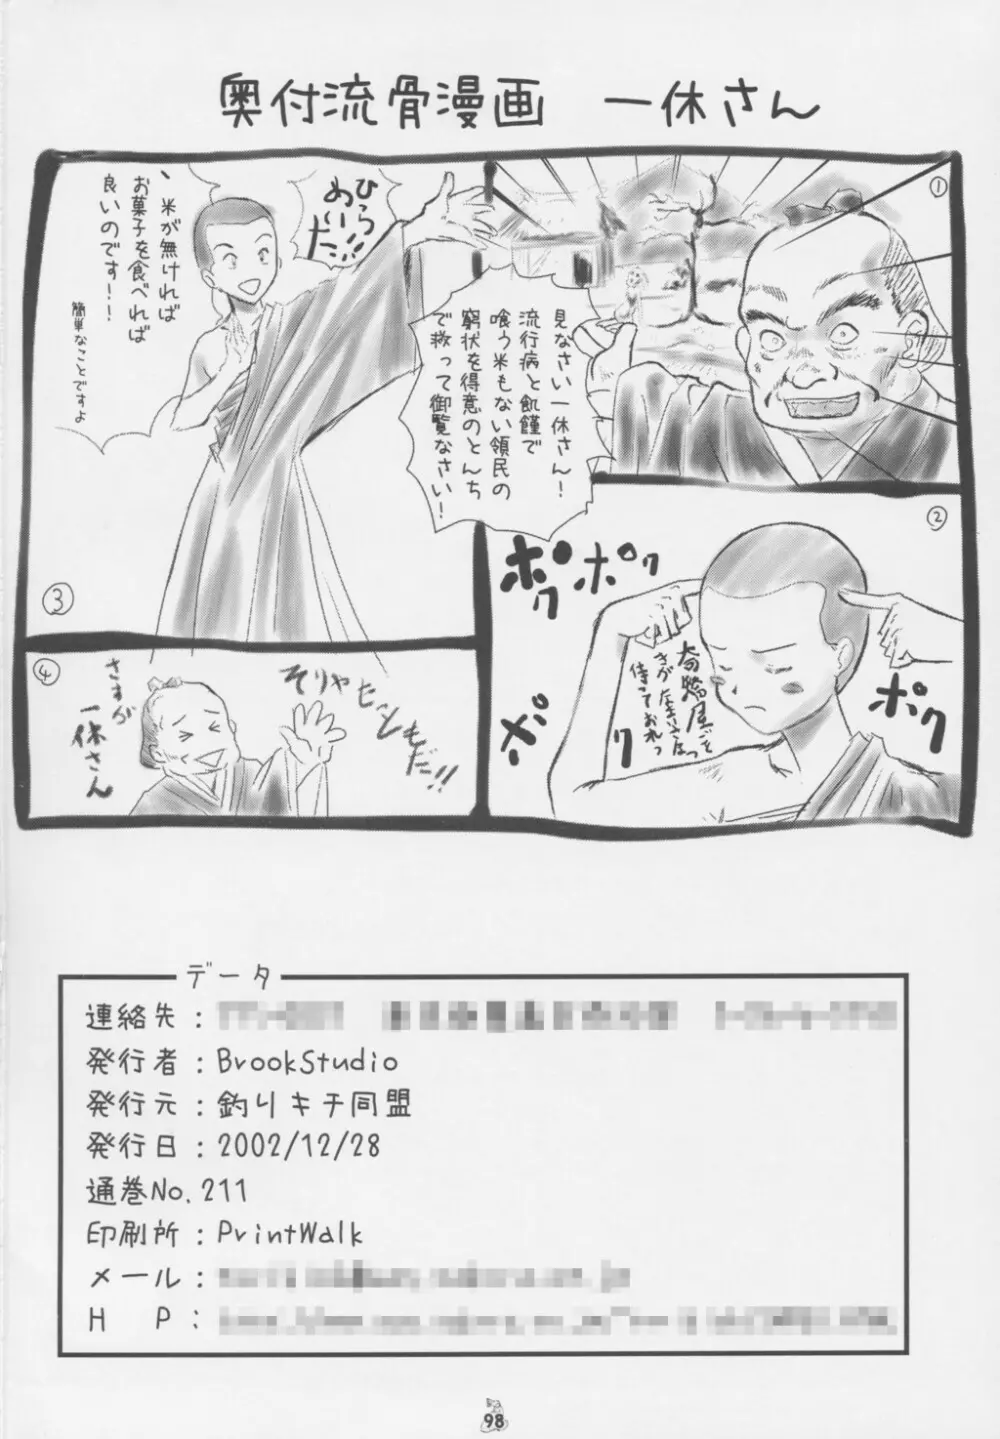 奥付流骨漫画　一休さん
①
見なさい一休さん！
流行病と飢饉で
喰う米もない領民の
窮状を得意のとんち
で救って御覧なさい！
②
ポク
ポク
ポク
ポク
待っておれっ
③
ひらめいた!!
、米が無ければ
お菓子を食べれば
良いのです!!
簡単なことですよ
④
そりゃヒともだ!!
さすが
一休さん
データ
連絡先：
発行者：BrookStudio
発行元：釣りキチ同盟
発行日：2002/12/28
通巻No.211
印刷所：PrintWalk
メール：
H　P：
98